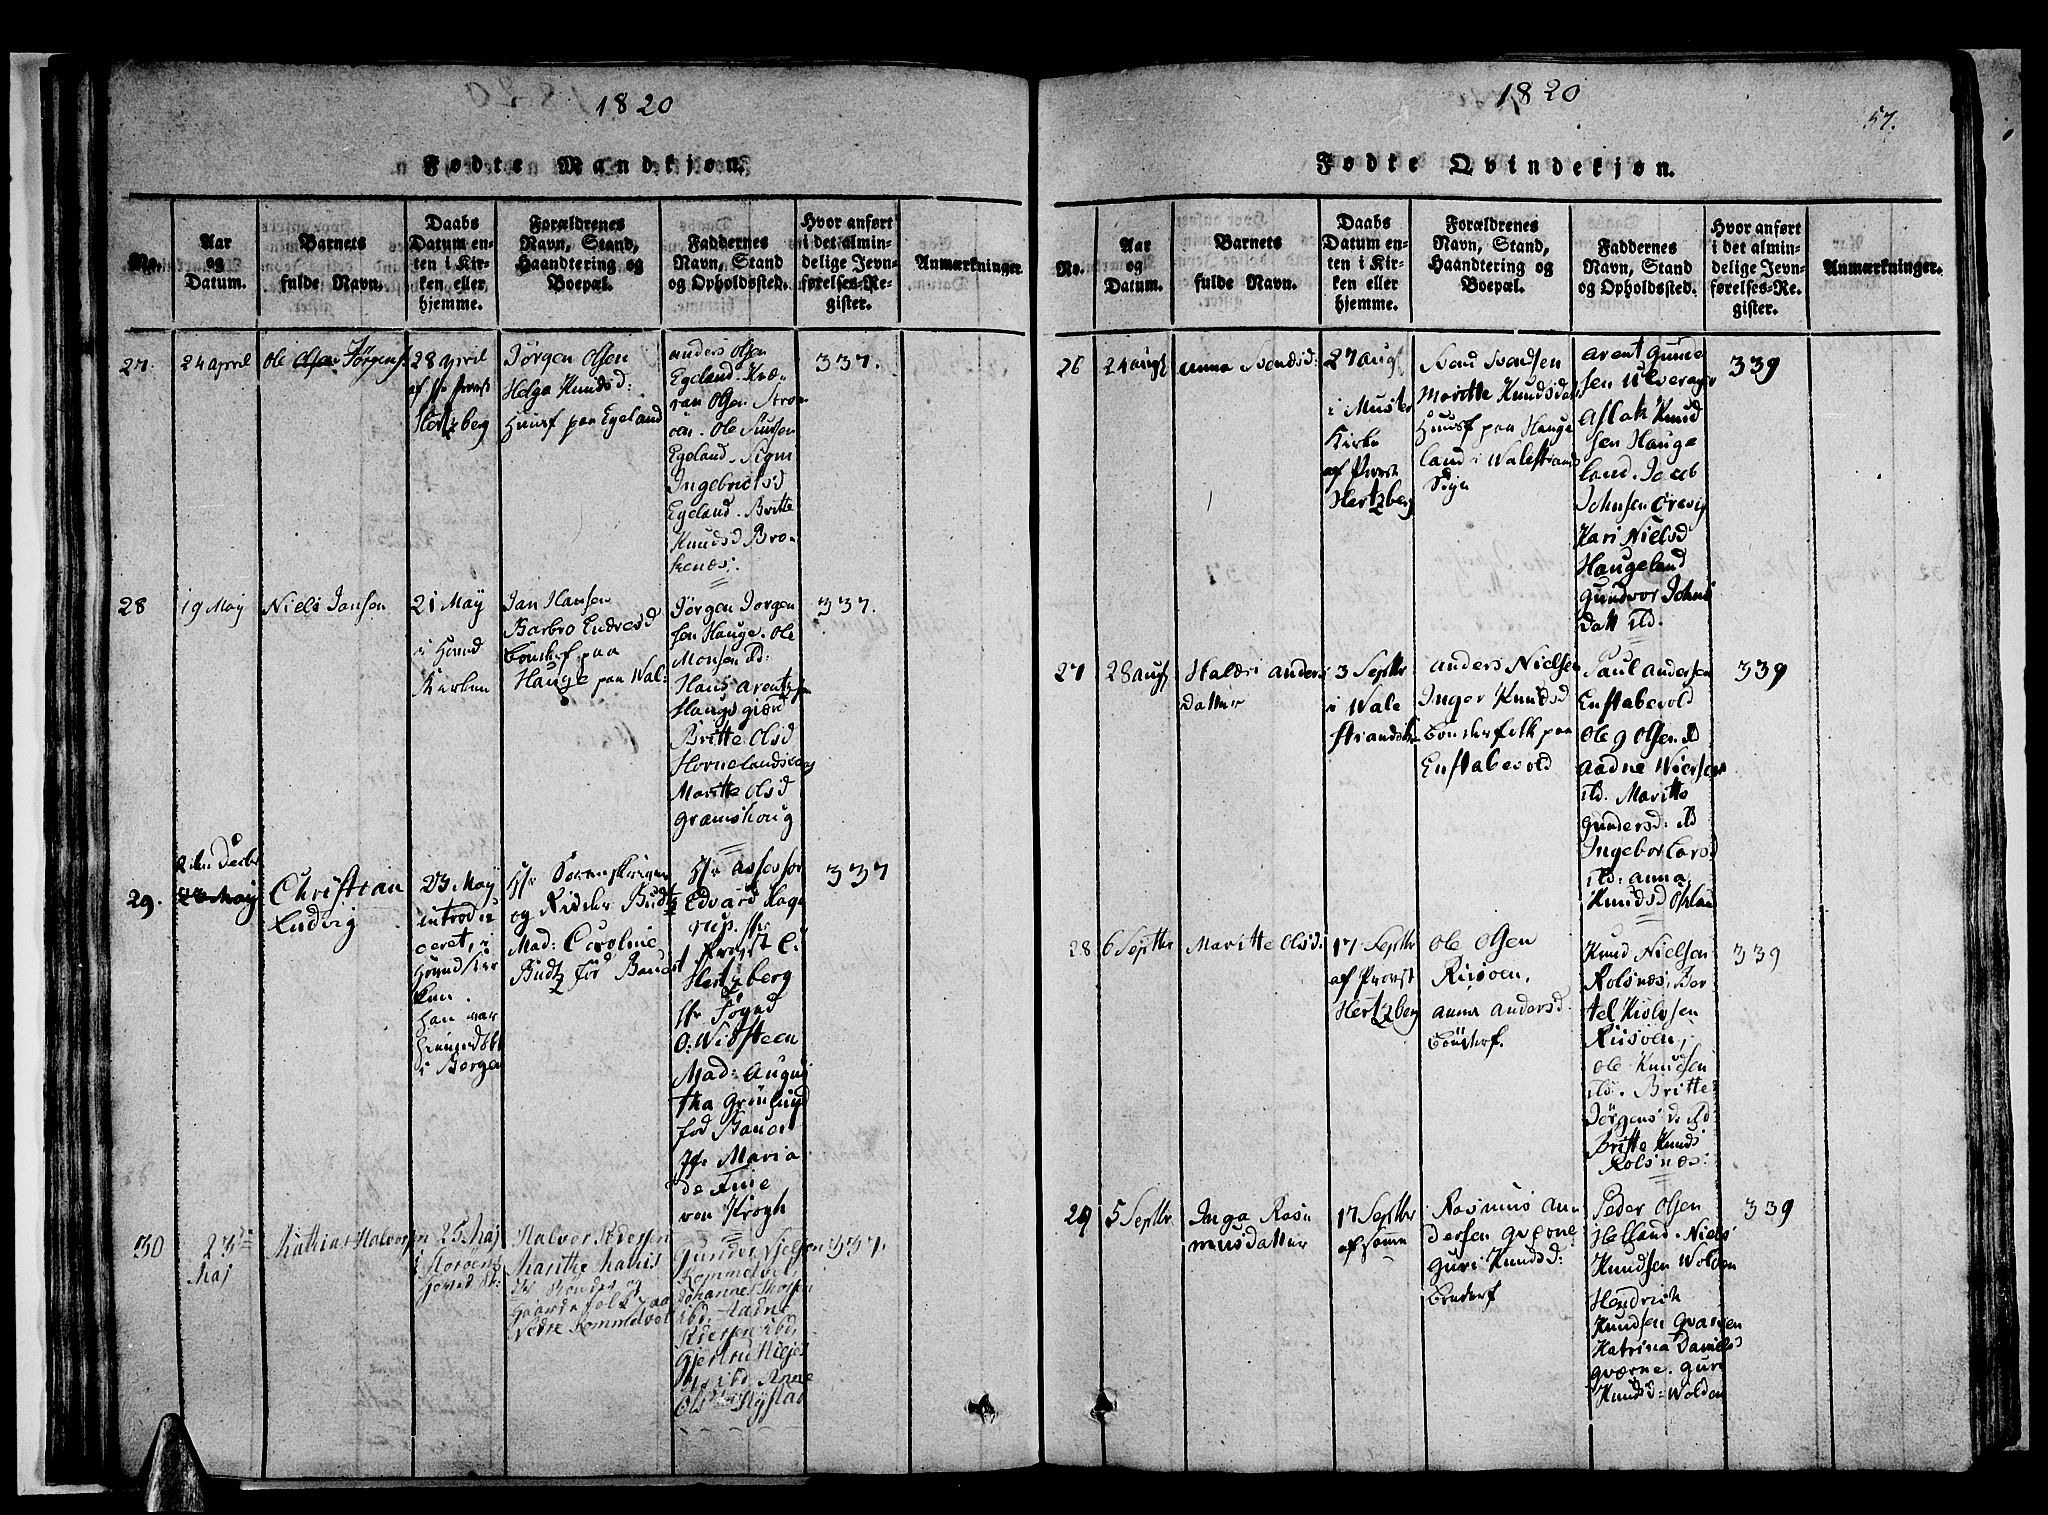 1820
Fødte Mandkjøn.
No.
Aar
og
Datum.
Barnets
fulde Navn.
Daabs
Datum en-
ten i Kir-
ken eller
hjemme.
Forældrenes
Navn, Stand,
Haandtering og
Boepæl.
Faddernes
Navn, Stand
og Opholdssted.
Hvor anført
i det almin-
delige Jevn-
førelses-Re-
gister.
Anmærkninger.
27.
24 april
Ole Olsen Jörgens.
28 april
af Hr Provst
Hertzberg
Jörgen Olsen
Helga Knudsd:
Huusf paa Egeland
anders Olsen
Egeland. Kræ-
ran Olsen Stro-
öen. Ole
Egeland. Signi
Ingebrictsd
Egeland. Britte
Knudsd Bro-
kenæs.
337.
28
19 May
Niels Jansen
21 May
i Houud
Kirken
Jan Hansen
Barbro Endresd
bönderf paa
Hauge paa Wal:
Jörgen Jörgen
sen Hauge. Ole
Monsen ibd:
Hans arentzen
Haugsgiærd
Britte Olsd
Hornelandsvaag
Maritte Olsd
gramshoug
337.
29.
28 May
Christian
Ludvig
23 May
introdu
ceret, i
Houudkir
ken.
han var
hiemmedöbt
i Bergen
Hr Sorenskriver
og Ridder Budtz
Mad: Caroline
Budtz föd Bauer
Hr assessor
Edvard Hage
rup. Hr
Provst C:
Hertzberg
Hr Foged
O: Widsteen
Mad: Augus
tha Grönlund
föd Bauer
Jfr Maria
de Fine
von Krogh
337
30
23de
Maj
Mathias Halvorsen
25 Maj
i Storöens
Hoved K:
Halvor Pedersen
Marithe Mathis
Dr Bönder og
Gaardefolk paa
Nedre Rommetvet
Gunder Njelsen
Rommetvet
Johannes Thorsen
ibd. Aadne
Pedersen ibd.
Gjertru Niels
Dr ibd. Anne
Olsdtr Nÿstad
337.
1820
57.
Fødte Qvindekjøn.
No.
Aar
og
Datum.
Barnets
fulde Navn.
Daabs
Datum en-
ten i Kir-
ken eller
hjemme.
Forældrenes
Navn, Stand,
Haandtering og
Boepæl.
Faddernes
Navn, Stand
og Opholdssted.
Hvor anført
i det almin-
delige Jevn-
førelses-Re-
gister.
Anmærkninger.
26
24 augs
anna Svendsd:
27 augs
i Muster
Kirke
af Provst
Hertzberg
Svend Svendsen
Maritte Knudsdatter
Huusf paa Hauge
land i Walestrands
Sogn
arent gunne
sen Ulverager
Aslak Knud
sen Hauge
land. Jacob
Johnsen Örevig
Kari Nielsd
Haugeland
gundvor Johns
Datt ibd.
339
27
28 augs
anders
datter
3 Septbr
i Wale
strands
anders Nielsen
Inger Knudsd
bönderfolk paa
Enstabevold
Paul andersen
Enstabevold
Ole Olsen ibd
aadne Wiersen
ibd. Maritte
Gundersd: ibd
Ingebor Larsd
ibd: anna
Knudsd
339
28
6 Septbr
Maritte Olsd:
17 Septbr
af Provst
Hertzberg
Ole Olsen
Risöen,
anna andersd.
bönderf.
Knud Nielsen
Rolsnæs, Ber
tel
Risöen,
Ole Knudsen
ibd. Britte
Jörgens d. ibd
Britte Knuds
Rolsnæs:
339
29
5 Septbr
Inga Ras
musdatter
17 Septbr
af samme
Rasmus an
dersen qverne
guri Knudsd:
bönderf
Peder Olsen
Helland. Niels
Knudsen Wolden
Hendrich
Knudsen Qværnen
Katrina Daniels
qværne. guri
Knudsd: Wolden
339